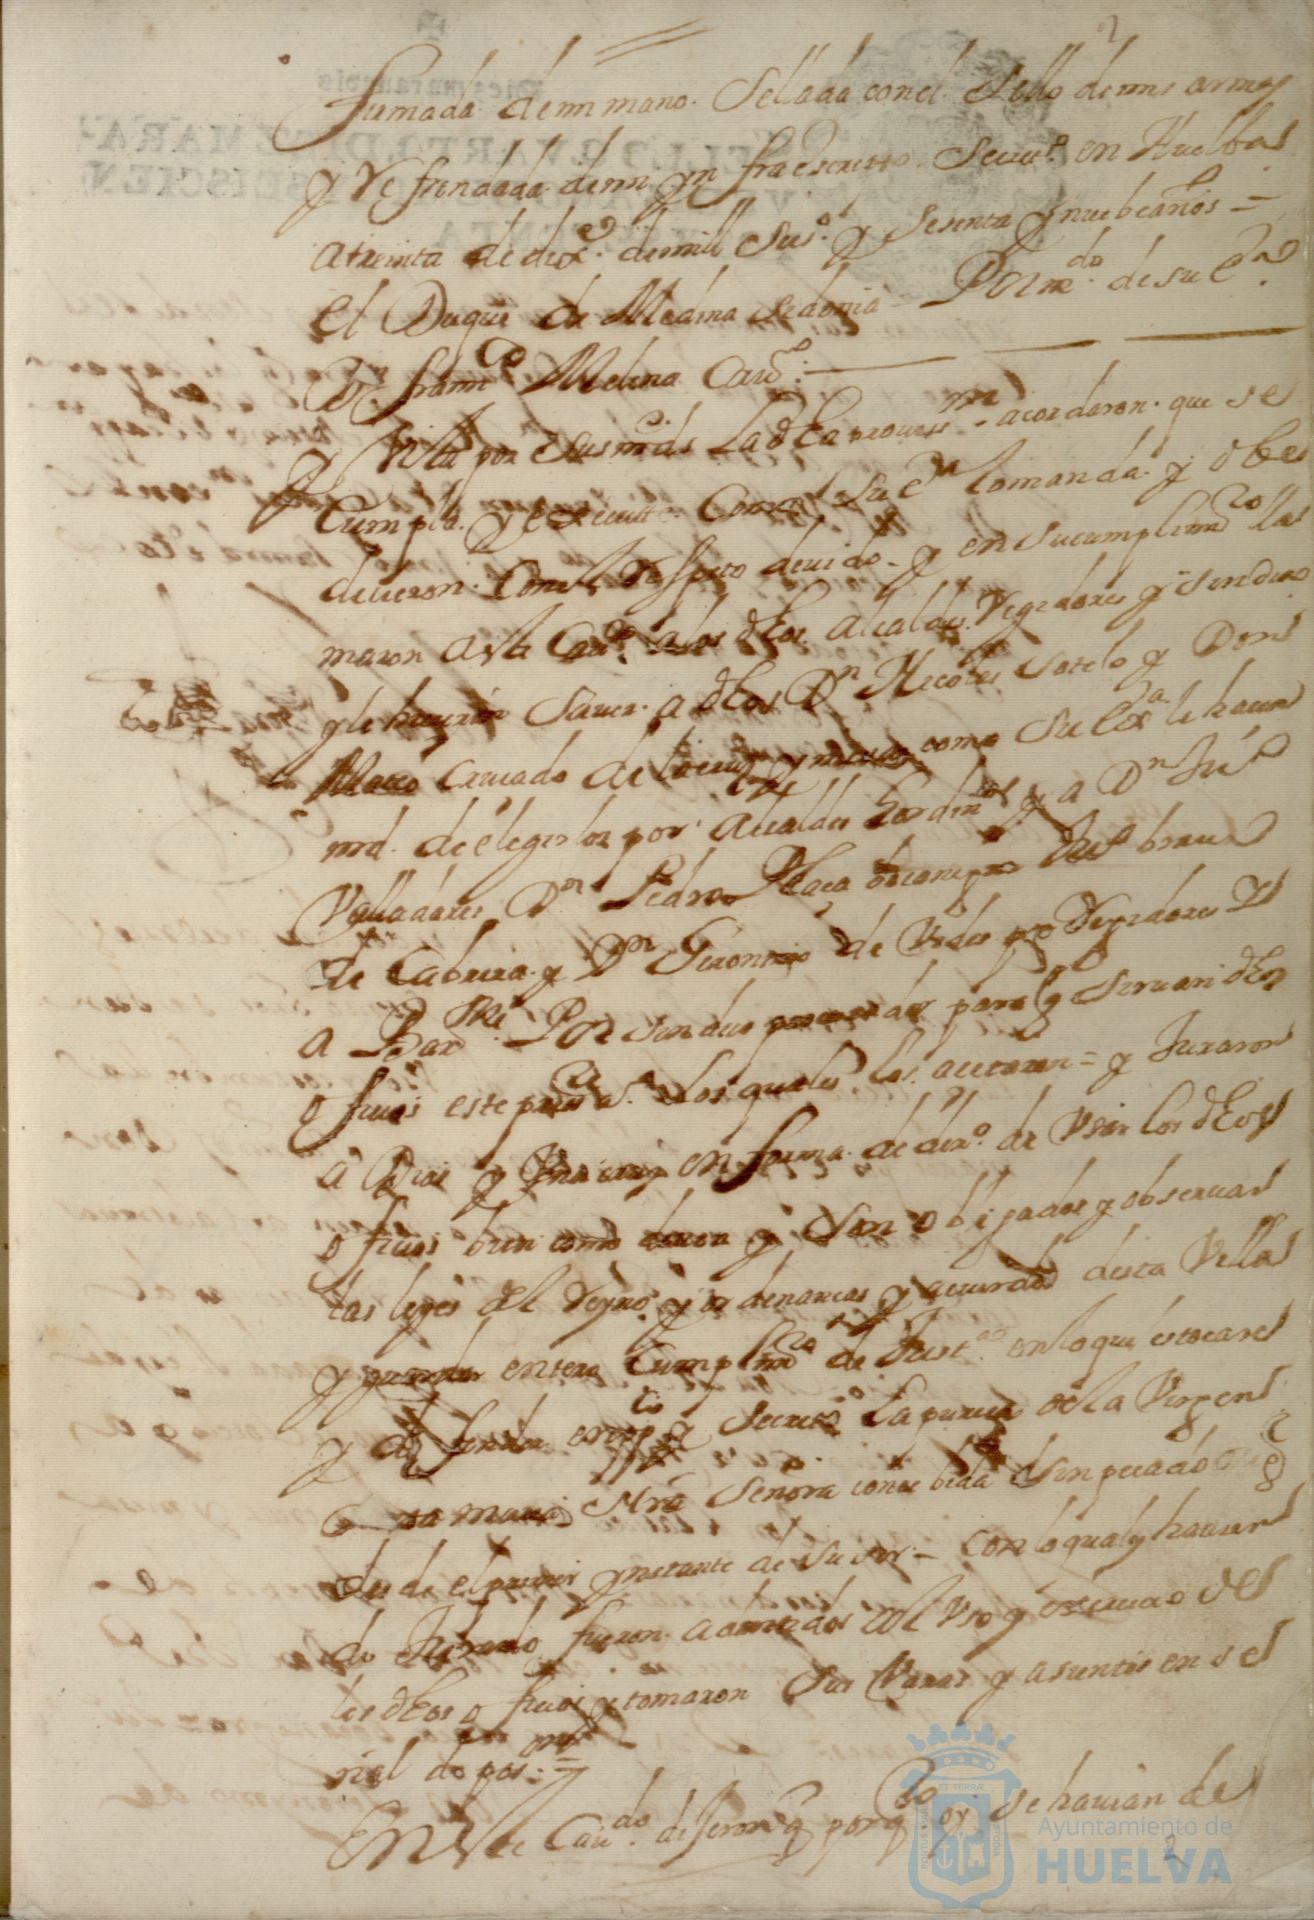 2
firmada de mi mano. Sellada con el sello de mis armas
y Refrendada del mi ynfraescripto Secret.º en Huelba
a treinta de diz.e de mill Seis.º y Sesenta y nuebe años =
el Duque de Medina Sidonia = Por m.do de su ex.a
D.n fran.co Molina
y Vista por sus mds la dha proviss.on acordaron que se
Cumpla y execute Como su ex.a lo manda y obe
decieron Con el Respeto devido y en su cumplim.to lla
maron a este Cav.do a los dhos Alcaldes Regidores y sindico
y le hicieron saver a dhos D.n Nicolas Sotelo y Don
Mateo como su Ex.a le hacia
md. de elegirlos por Alcaldes hordin.os y a D.n Ju.o
Valladares D.n Pedro Plaça ocampo brau
de Cabrera y D.n Geronimo de por Regidores y
a Bar.me Por sindico procurador para q sirvan dhos
oficios este press.te a.º los quales los acetaron = y Juraron
a Dios y Una cruz en forma de der.º de Usar los dhos
oficios bien como deven y son obligados y observar
las leyes del Reyno y ordenancas y acuerdos desta Villa
y guardar entero Cumplim.to de Just.a en lo que es tocare
y defender en pp.co y secreto la pureza de la Virgen
santa maria Nra Señora concebida sin pecado orig
desde el primer ynstante de su ser = Con lo qual y haver
do Jurado fueron admitidos al Uso y exercicio de
los dhos oficios y tomaron Sus Varas y asientos en se
ñal de poss.on =
En este Cav.do dijeron q por q.to oy se havian de
Ayuntamiento de
HUELVA
2